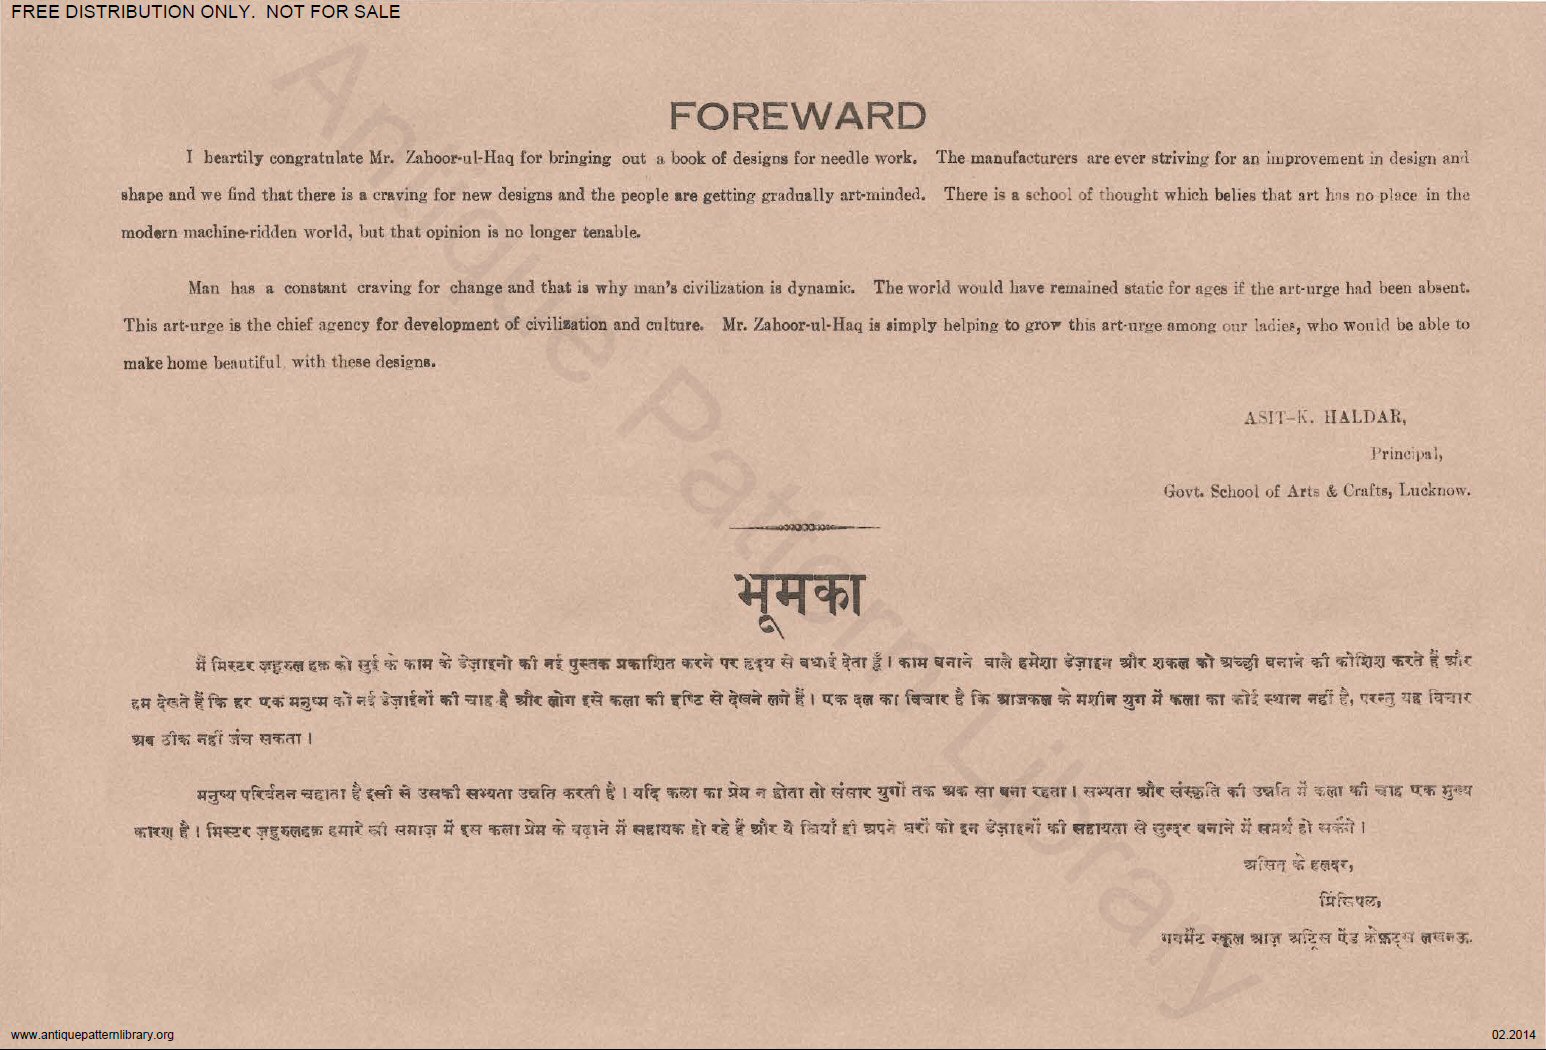 FREE DISTRIBUTION ONLY. NOT FOR SALE
FOREWARD
I heartily congratulate Mr. Zahoor-ul-Haq for bringing out a book of designs for needle work. The manufacturers are ever striving for an improvement in design and
shape and we find that there is a craving for new designs and the people are getting gradually art-minded. There is a school of thought which belies that art has no place in the
modern machine-ridden world, but that opinion is no longer tenable.
Man has a constant craving for change and that is why man's civilization is dynamic. The world would have remained static for ages if the art-urge had been absent.
This art-urge is the chief agency for development of civilization and culture. Mr. Zahoor-ul-Haq is simply helping to grow this art-urge among our ladies, who would be able to
make home beautiful with these designs.
ASIT-K. HALDAR,
Principal,
Govt. School of Arts & Crafts, Lucknow.
भूमका
मैं मिस्टर ज़हुरुल हक़ को सुई के काम के डेज़ाइनो की नई पुस्तक प्रकाशित करने पर हृदय से बधाई देता हूँ। काम बनाने वाले हमेशा डेज़ाइन और शकल को अच्छी बनाने की कोशिश करते हैं और
हम देखते हैं कि हर एक मनुष्य को नई डेज़ाईनों की चाह है और लोग इसे कला की दृष्टि से देखने लगे हैं। एक दल का विचार है कि आजकल के मशीन युग में कला का कोई स्थान नहीं है, परन्तु यह विचार
अब ठीक नहीं जंच सकता।
मनुष्य परिर्वतन चहाता है इसी से उसकी सभ्यता उन्नति करती है। यदि कला का प्रेम न होता तो संसार युगों तक अक सा बना रहता। सभ्यता और संस्कृति की उन्नति में कला की चाह एक मुख्य
कारण है। मिस्टर ज़हुरुलहक़ हमारे स्त्री समाज़ में इस कला प्रेम के बढ़ाने में सहायक हो रहे हैं और ये स्त्रियाँ ही अपने घरों को इन डेज़ाइनों की सहायता से सुन्दर बनाने में समर्थ हो सकेंगे।
असित् के हलदर,
प्रिंसिपल,
गवर्मेंट स्कूल आज़ अर्ट्रिस ऐंड क्रेफ़्ट्स लखनऊ.
Antique Pattern Library
www.antiquepatternlibrary.org
02.2014